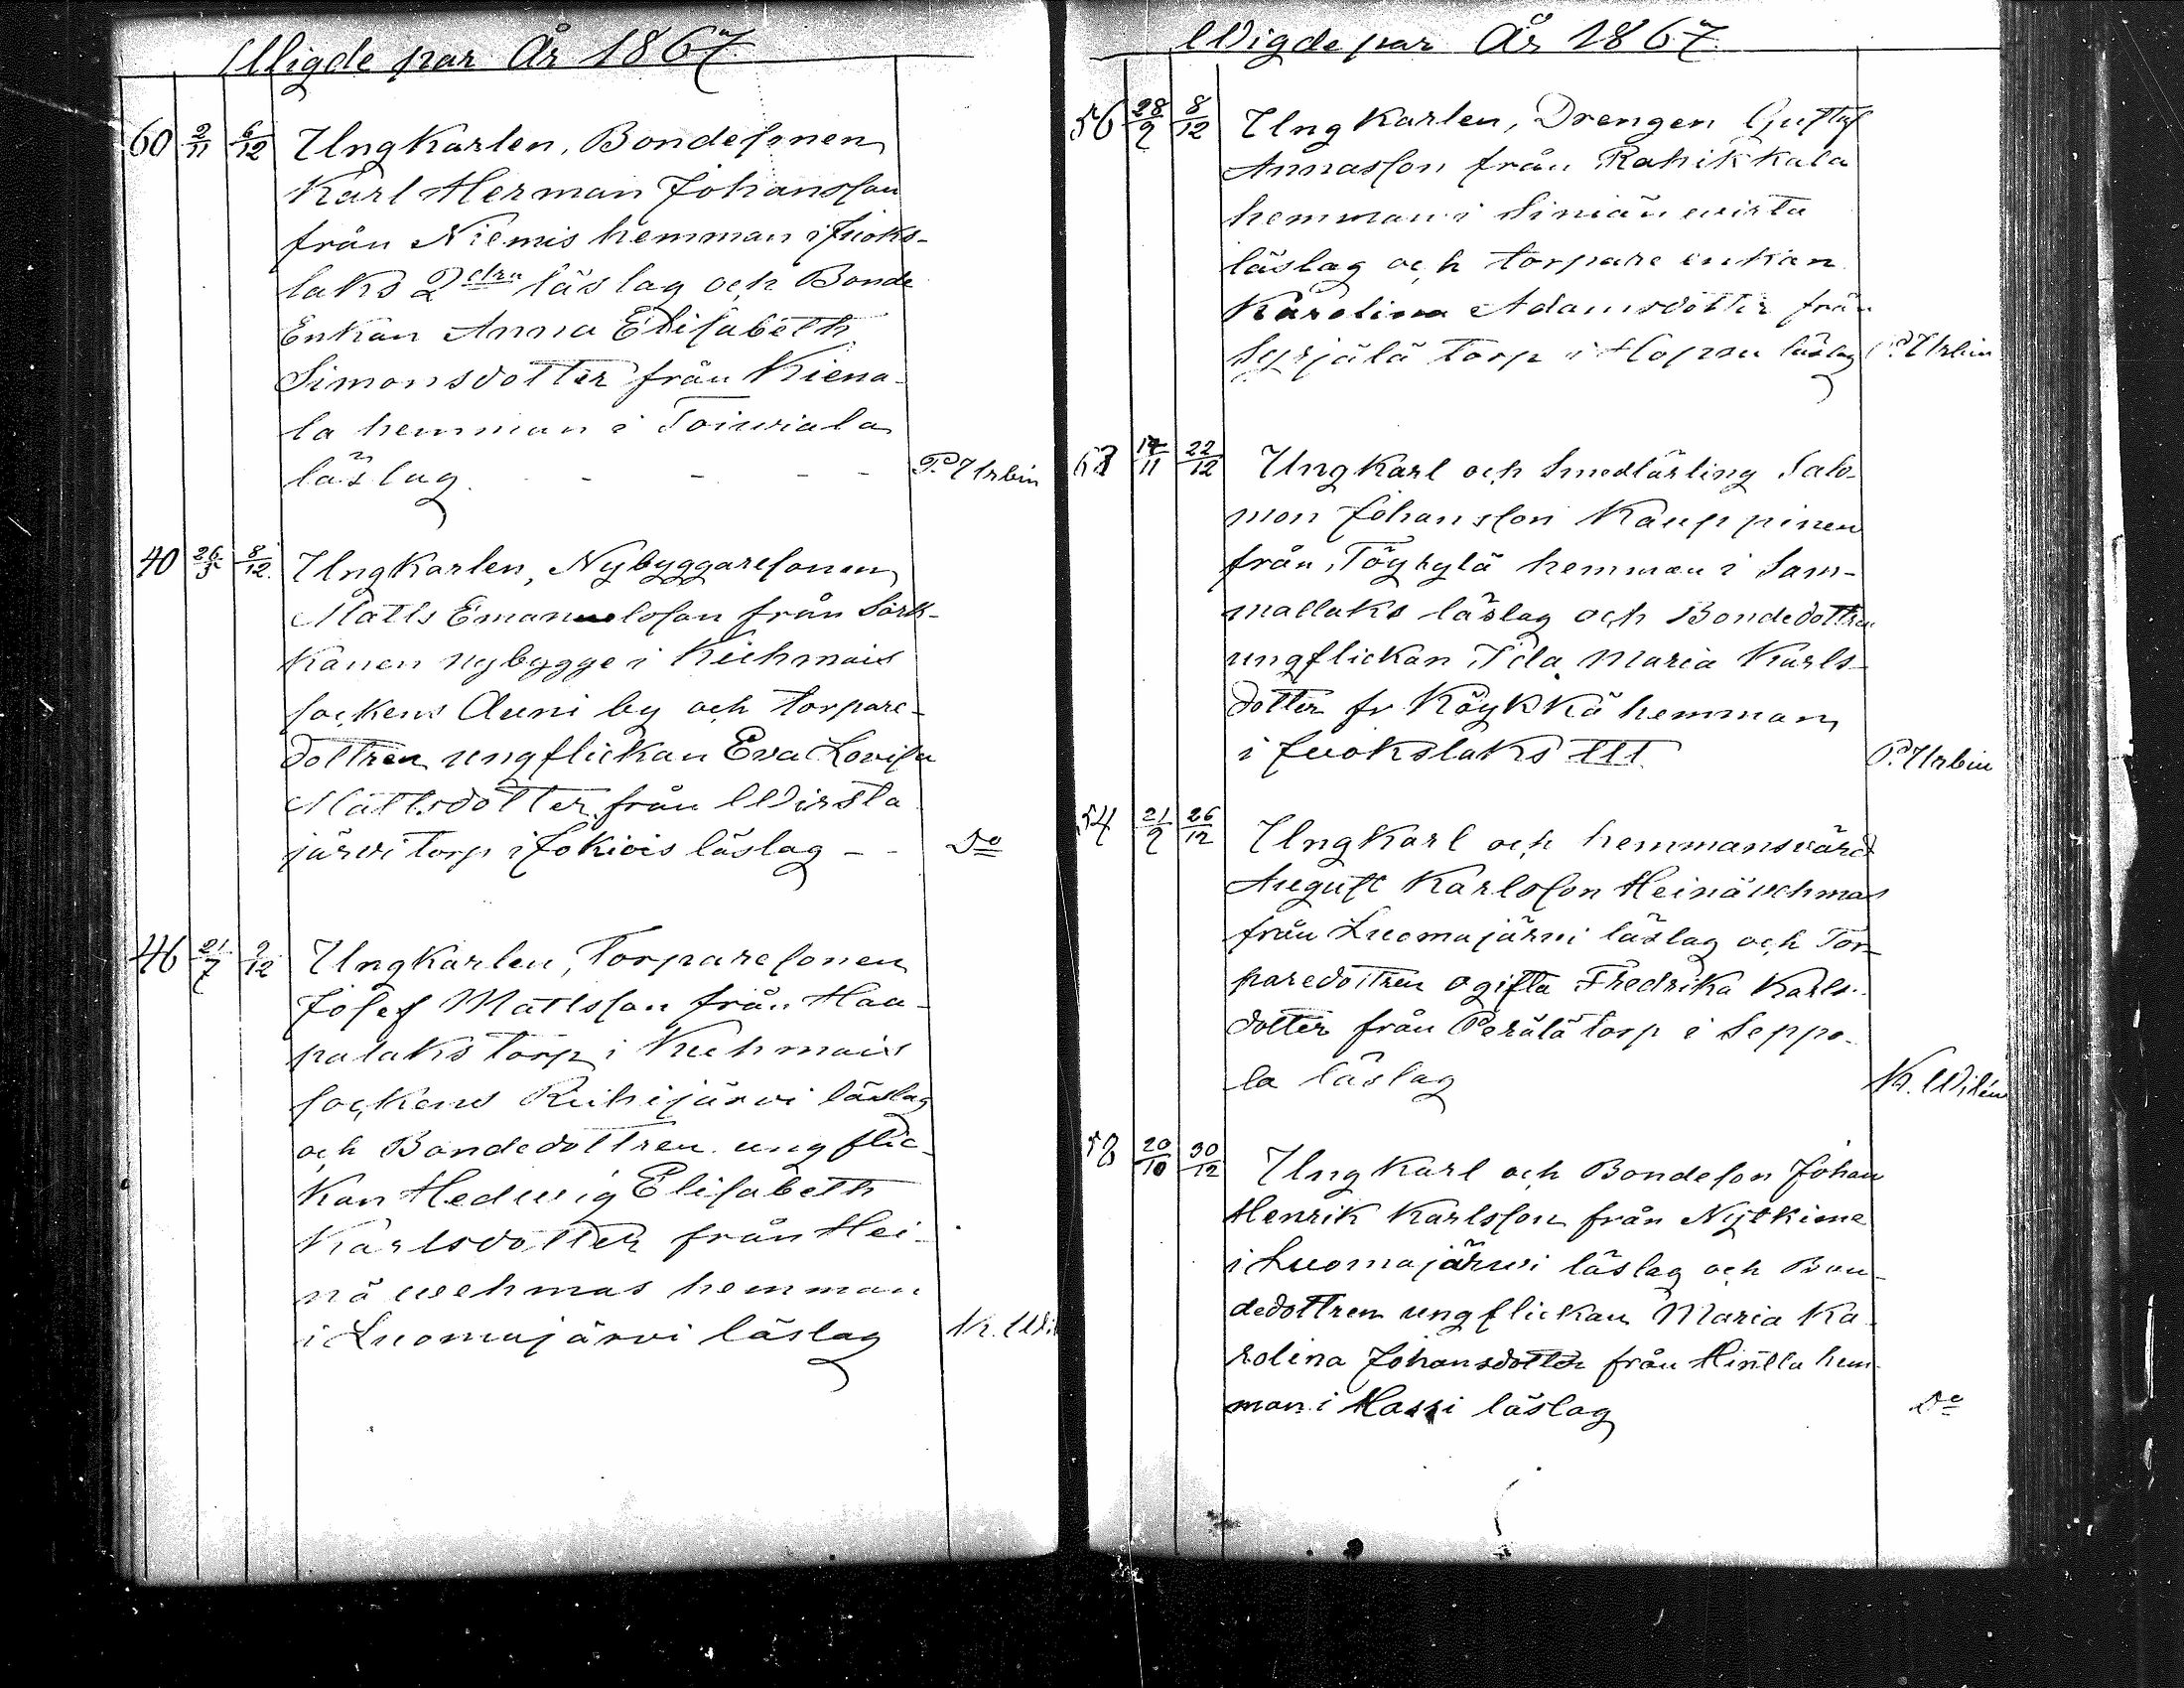 Wigde par År 1867
60 2/11 6/12 Ungkarlen, Bondesonen
Karl Herman Johansson
från Niemis hemman i Juoks-
laks 2dra läslag och Bonde
Enkan Anna Elisabeth
Simonsdotter från Kiena-
la hemman i Toiwiala
läslag. - - - - P. Urbin
40 26/5 8/12 Ungkarlen, Nybyggaresonen
Matts Emanuelsson från Särk-
kanen nybygge i Kuhmois
sockens Auni by och torpare-
dottren ungflickan Eva Lovisa
Mattsdotter från Wirsta
järwi torp i Jokiois läslag - - Do
46 21/7 9/12 Ungkarlen, Torparesonen
Josef Mattsson från Haa-
palaks torp i Kuhmois
sockens Ruihijärwi läslag
och Bondedottren ungflic-
kan Hedwig Elisabeth
Karlsdotter från Hei-
nä wehmas hemman
i Luomajärwi läslag K. Wi
Wigde par År 1867
56 28/9 8/12 Ung Karlen, Drengen Gustaf
Annasson från Rahikkala
hemman i Siniän wirta
läslag och torpare enkan
Karolina Adamsdotter från
Syrjälä torp i Hopsu läslag P. Urbin
63 17/11 22/12 Ung Karl och Smedlärling Salo-
mon Johansson Kauppinen
från Töyrylä hemman i Sam-
mallaks läslag och Bondedottren
ungflickan Ida Maria Karls-
dotter fr Köykkä hemman
i Juokslaks III P. Urbin
54 21/9 26/12 Ungkarl och hemmansvärd
August Karlsson Heinäwehmas
från Luomajärwi läslag och Tor-
paredottren ogifta Fredrika Karls-
dotter från Perälä torp i Seppo-
la läslag K. Widén
58 20/10 30/12 Ungkarl och Bondeson Johan
Henrik Karlsson från Nytkime
i Luomajärwi läslag och Bon-
dedottren ungflickan Maria Ka-
rolina Johansdotter från Hintila hem-
man i Hassi läslag Do